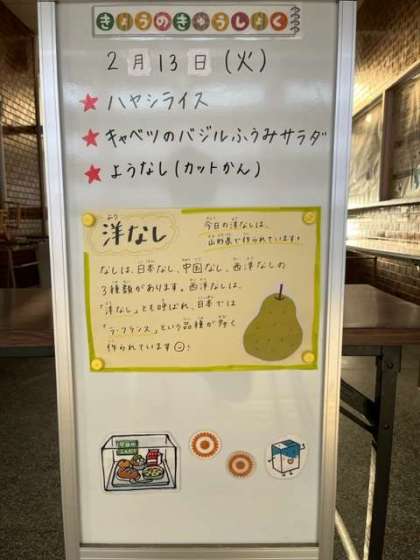 きょうのきゅうしょく
2月13日(火)
★ハヤシライス
★キャベツのバジルふうみサラダ
★ようなし(カットかん)
洋なし
今日の洋なしは、
山形県で作られています!
なしは、日本なし、中国なし、西洋なしの
3種類があります。西洋なしは、
「洋なし」とも呼ばれ、日本では
「ラ・フランス」という品種が多く
作られています